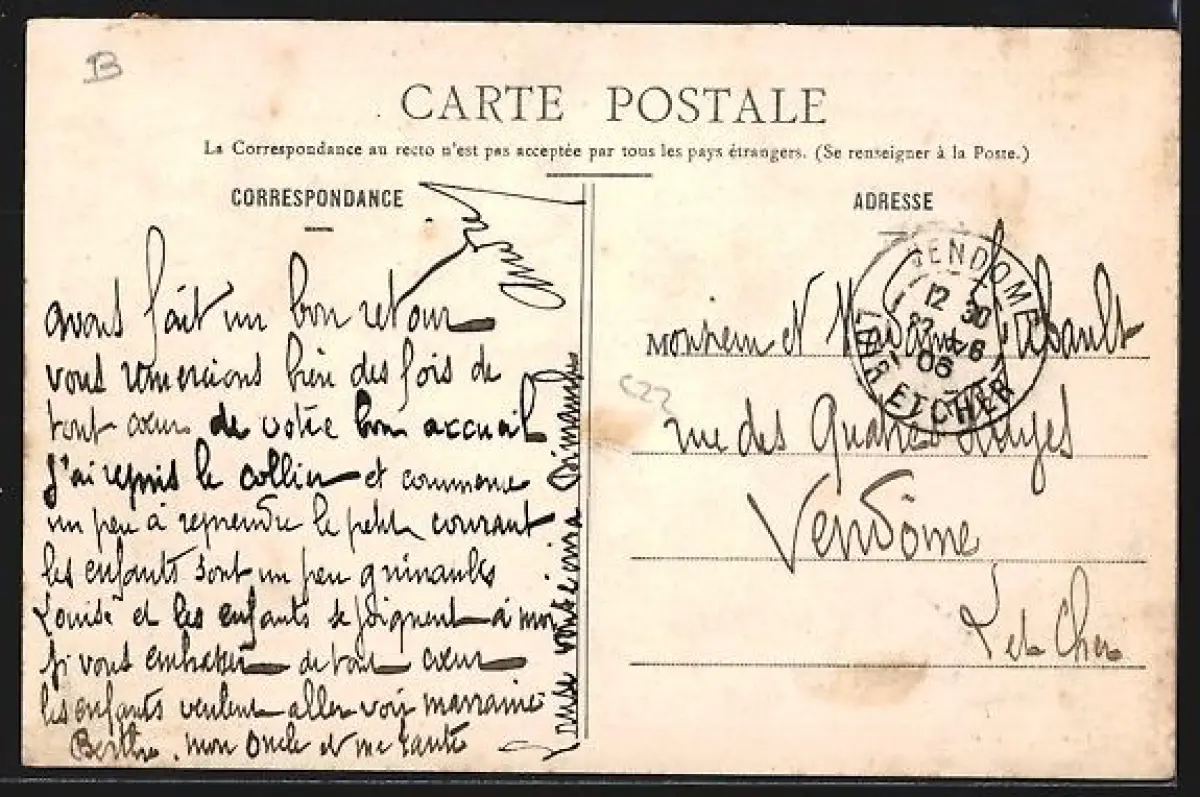 B
CARTE POSTALE
La Correspondance au recto n'est pas acceptée par tous les pays étrangers. (Se renseigner à la Poste.)
CORRESPONDANCE
avons fait un bon retour
vous remercions bien des fois de
tout cœur de votre bon accueil
J'ai repris le collier et commence
un peu à reprendre le petit courant
les enfants sont un peu grinauds
Louise et les enfants se joignent à moi
pr vous embrasser de tout cœur
les enfants veulent aller voir marraine
Berthe, mon oncle et me tante
Louise vous écrira Dimanche
ADRESSE
VENDOME
12 30
06
LOIR ET CHER
Monsieur et Madame
rue des Quatre
C22
Vendôme
L et Cher